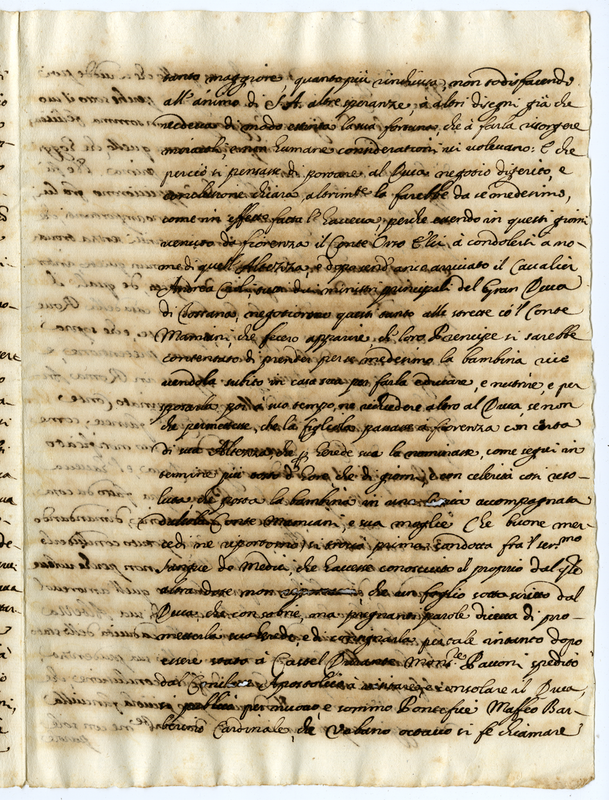 tanto maggiore, quanto più rinchiusa, non sodisfacendo
all'animo di S. A. altre speranze, ò altri disegni già che
vedeva di modo estinta la sua fortuna, che à farla risorgere
miracoli, e non humane considerationi vi volevano: E che
perciò si pensasse di portare al Duca negotio digerito, e
conclusione chiara, altrimte la farebbe da se medesimo,
come in effetto fatta l'haveva, perche essendo in questi giorni
venuto da fiorenza il Conte Orso d'Elci, à condolersi a no-
me di quell'Altezza, e dopo anco arrivato il Cavalier
Andrea Cioli, ministri principali del Gran Duca
di Toscana, negotiorno quasi tanto alle strette co'l Conte
Mamiani, che fecero apparire, che il loro Prencipe si sarebbe
contentato di prender per se medesimo la bambina rice
vendola subito in casa sua per farla educare, e nutrire, e per
sposarla poi à suo tempo, ne volendo altro dal Duca, se non
che permettesse, che la figliola passasse a fiorenza con
di sua Altezza che herede sua la nominasse, come seguì in
termine più tosto d'hore che di giorni, e con celerità così riso-
luta che posta la bambina in una accompagnata
dal Conte Mamiani, e sua moglie Che buone mer-
cedi ne riportorno, si trovò prima condotta fra'l sermo
sangue de Medici, che havesse conosciuto il proprio dal qle
altro non che un foglio sotto scritto dal
Duca, che con sobrie, ma pregnanti parole diceva di pro-
metterla sua herede, e di consegnarla per tale intanto dopo
essere stato à Castel Durante Monsre Pavoni spedito
dal Apostolico à visitare, e consolare il Duca,
si publicò per nuovo, e sommo Pontefice Maffeo Bar-
berino Cardinale, che Urbano ottavo si fè chiamare